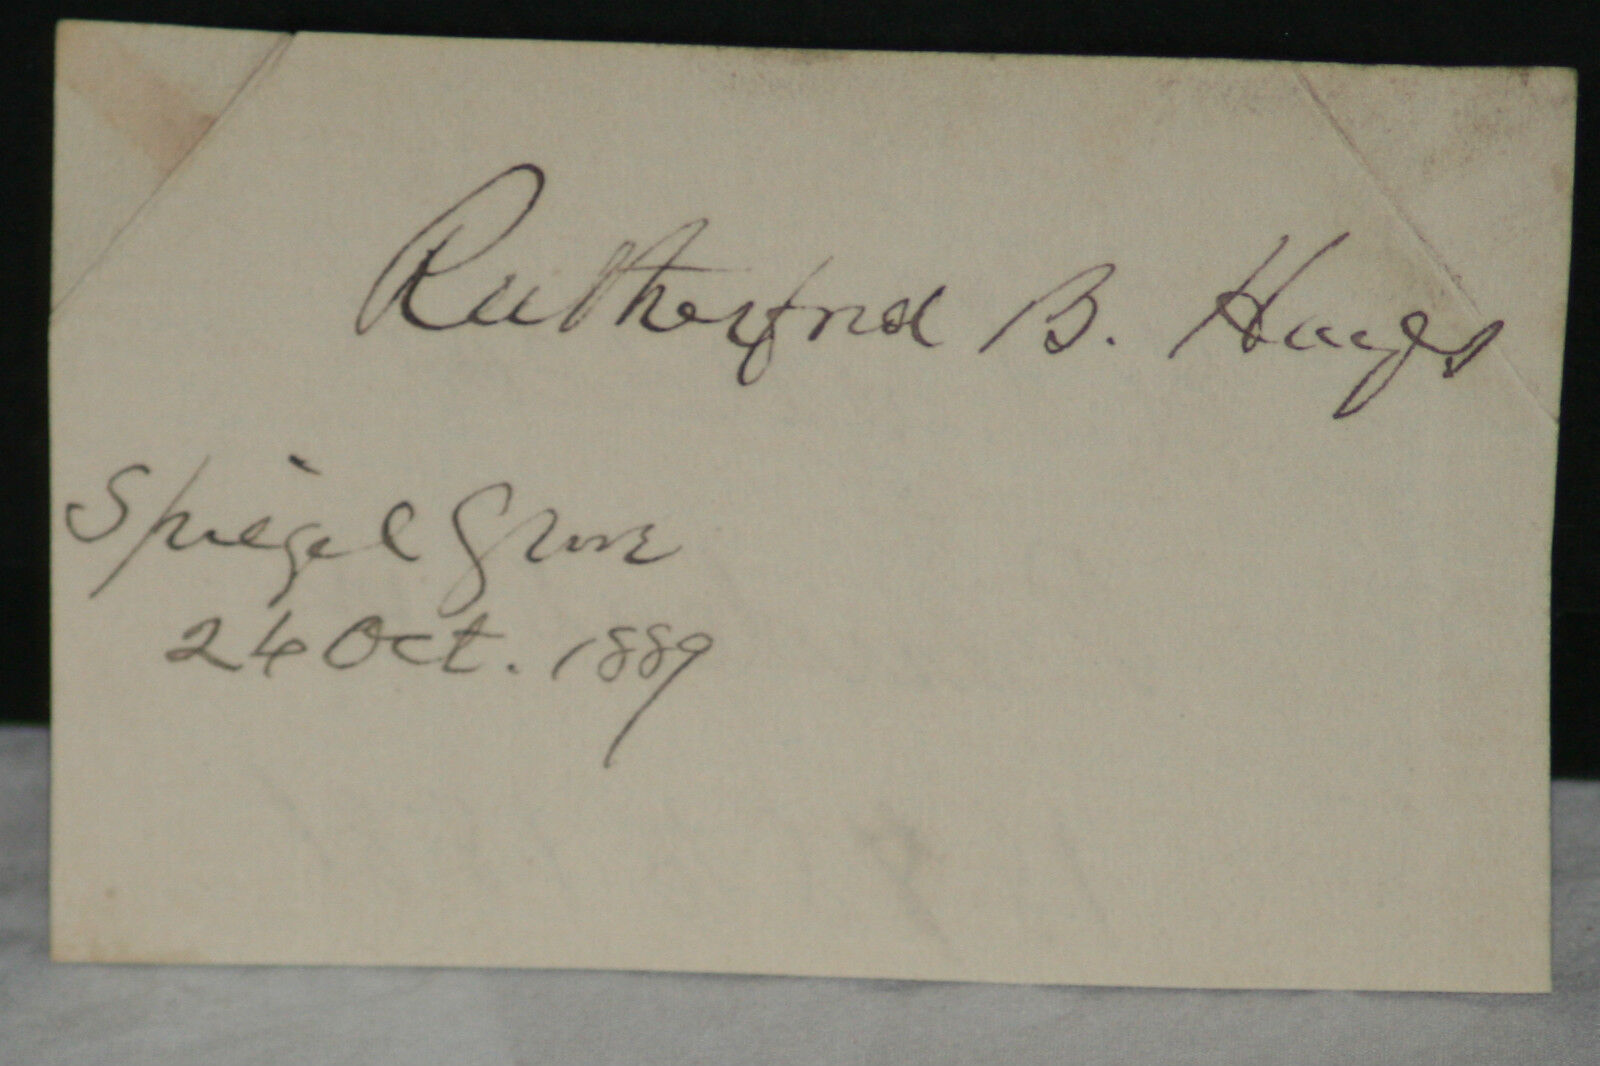 Rutherford B. Hayes
Spiegel Grove
24 Oct. 1889